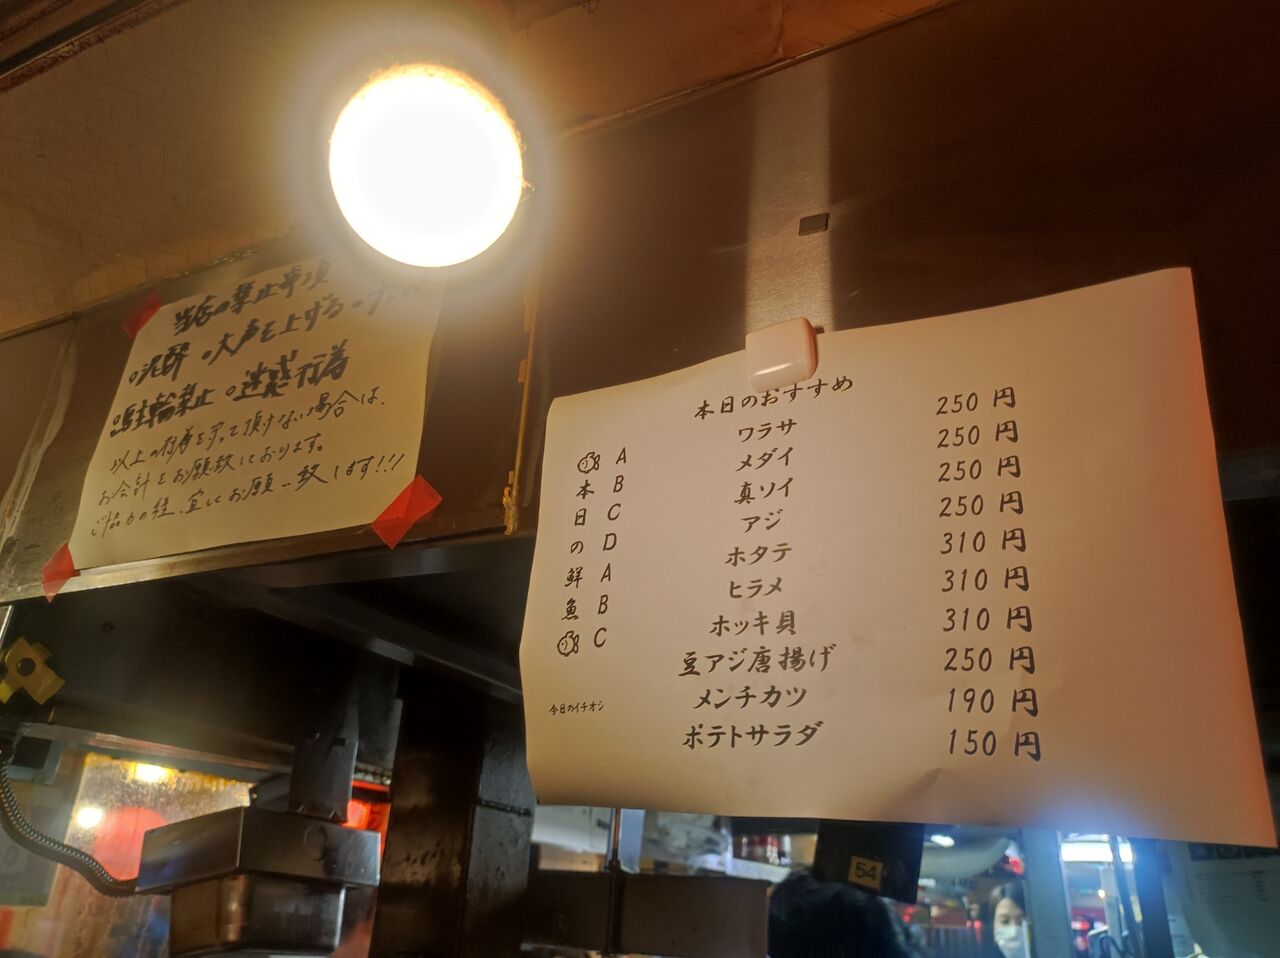 当店の禁止事項
○泥酔 ○大声を上げる ○ナンパ
○駐輪禁止 ○迷惑行為
以上の行為を守って頂けない場合は、
お会計をお願い致しております。
ご協力の程、宜しくお願い致します!!!
本日のおすすめ
本日の鮮魚
A ワラサ 250円
B メダイ 250円
C 真ソイ 250円
D アジ 250円
A ホタテ 310円
B ヒラメ 310円
C ホッキ貝 310円
豆アジ唐揚げ 250円
今日のイチオシ メンチカツ 190円
ポテトサラダ 150円
54